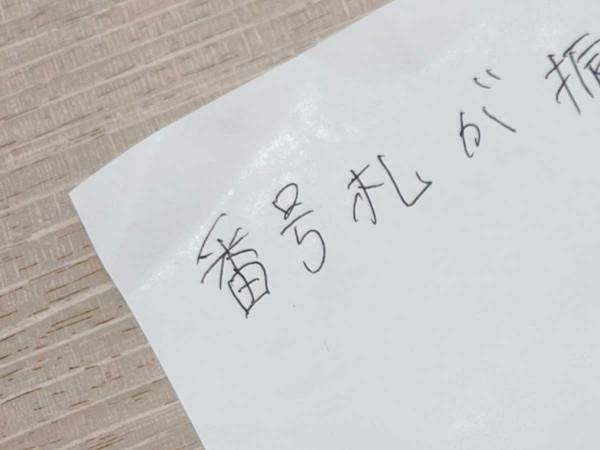 番号札が振